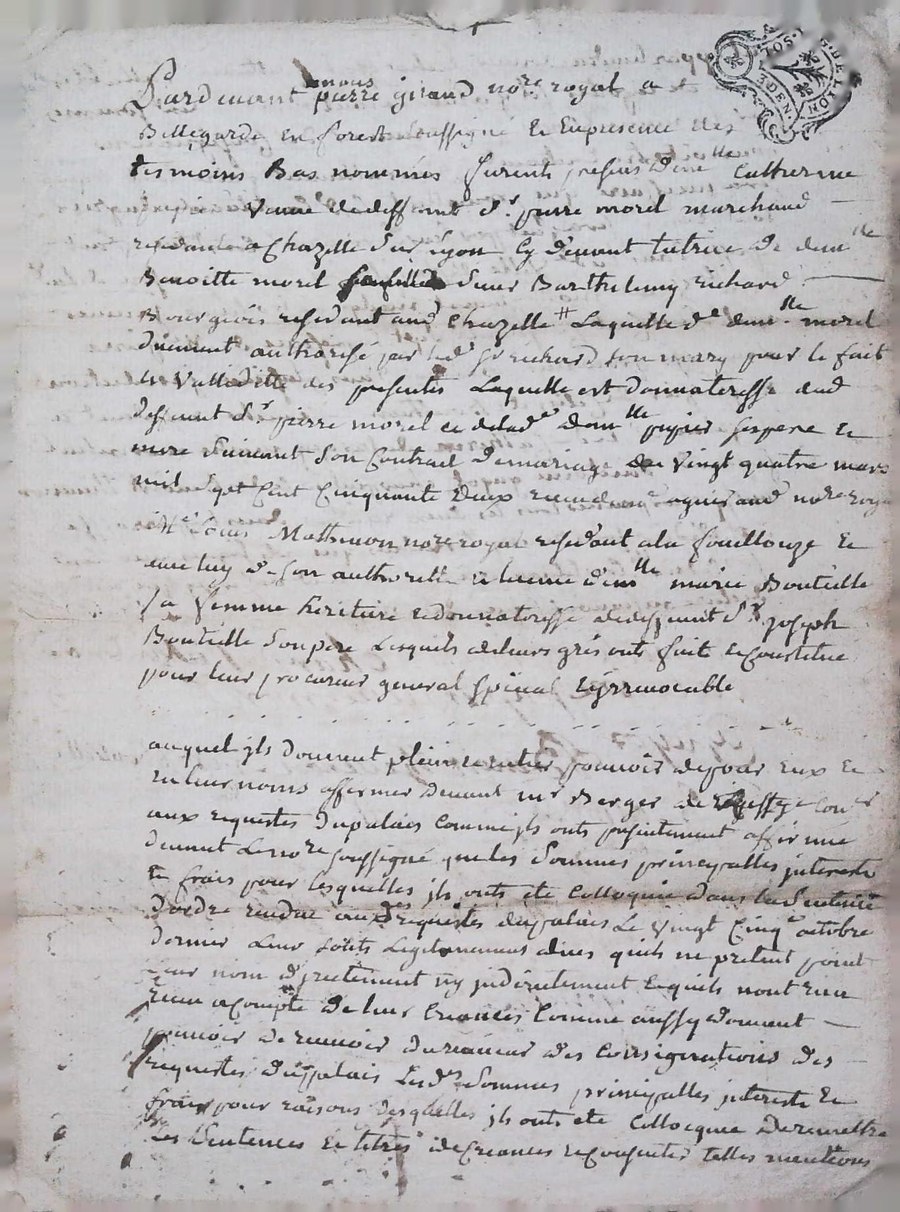 Pardevant nous pierre giraud no.re royal a
Bellegarde en forest soussigné Et En presence des
tesmoins Bas nommés furent presens dem.lle Catherine
veuve de deffunt S.r pierre morel marchand
residante a Chazelle sur Lyon Cy devant tutrice de dem.lle
Benoitte morel sieur Barthelemy richard
Bourgeois residant aud. Chazelle # Laquelle d.e dem.lle morel
duement authorisé par led. Sr richard son mary pour le fait
et Vallidité des presentes Laquelle est donnateresse dud.
deffunt S.r pierre morel et de lad.e dem.lle ses pere Et
mere suivant son Contrat de mariage du vingt quatre mars
mil sept Cent Cinquante deux no.re royal
M.e Louis Mathevon no.re royal residant a la fouillouze Et
avec luy de son authorité dem.lle marie Bouteille
sa femme heritiere et donnatoresse de deffunt S.r joseph
Bouteille son pere Lesquels de leurs grés onts fait et constitué
pour leur procureur general special Et jrrevocable
auquel jls donnent plein et entier pouvoir de pour Eux Et
en leur noms affermer devant mr Berger de con.er
aux requestes du palais comme jls onts presentement affirmé
devant Le no.re soussigné que les sommes principalles jnterests
Et frais pour lesquelles jls onts eté Colloquée dans la Sentence
d'ordre rendue aux requestes du palais Le vingt Cinq.e octobre
dernier Leur sonts Legitimement dües quils ne pretent point
Leur nom directement ny jndirectement Et quils nont rien
receu a compte de leur Creances Comme aussy donnent
pouvoir de recevoir du receveur des Consignations des
requestes du palais Lesd. sommes principalles jnterests Et
frais pour raisons desquelles jls onts eté Colloquée de remettre
Les Sentences Et titres de Creances et consentir telles mentions